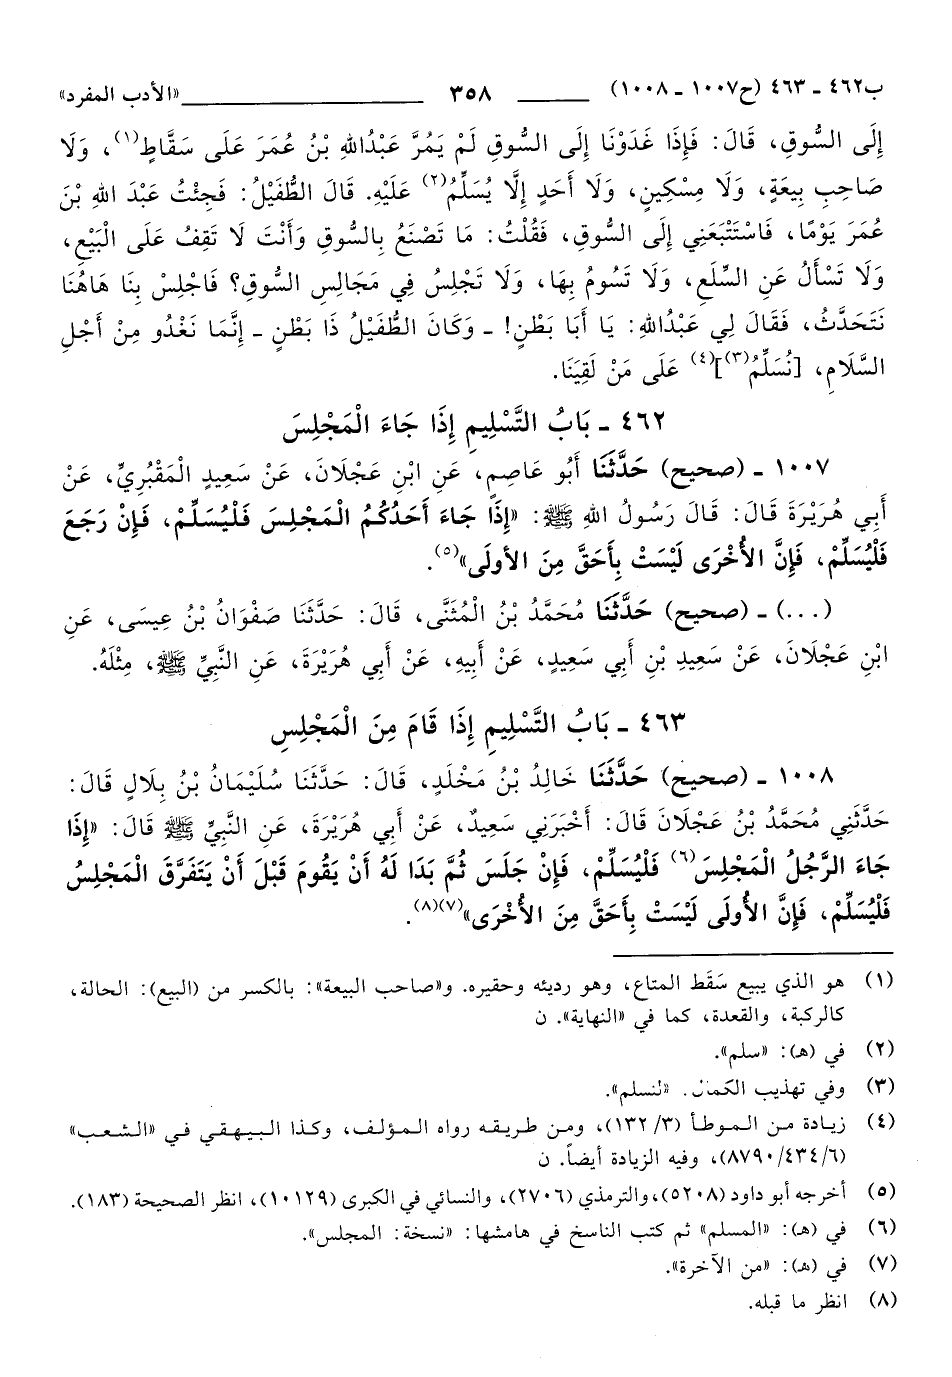 ب٤٦٢ ـ ٤٦٣ (ح١٠٠٧ ـ ١٠٠٨) ٣٥٨ «الأدب المفرد»
إِلَى السُّوقِ، قَالَ: فَإِذَا غَدَوْنَا إِلَى السُّوقِ لَمْ يَمُرَّ عَبْدُاللهِ بْنُ عُمَرَ عَلَى سَقَّاطٍ(١)، وَلَا
صَاحِبِ بِيعَةٍ، وَلَا مِسْكِينٍ، وَلَا أَحَدٍ إِلَّا يُسَلِّمُ(٢) عَلَيْهِ. قَالَ الطُّفَيْلُ: فَجِئْتُ عَبْدَ اللهِ بْنَ
عُمَرَ يَوْمًا، فَاسْتَتْبَعَنِي إِلَى السُّوقِ، فَقُلْتُ: مَا تَصْنَعُ بِالسُّوقِ وَأَنْتَ لَا تَقِفُ عَلَى الْبَيْعِ،
وَلَا تَسْأَلُ عَنِ السِّلَعِ، وَلَا تَسُومُ بِهَا، وَلَا تَجْلِسُ فِي مَجَالِسِ السُّوقِ؟ فَاجْلِسْ بِنَا هَاهُنَا
نَتَحَدَّثُ، فَقَالَ لِي عَبْدُاللهِ: يَا أَبَا بَطْنٍ! ـ وَكَانَ الطُّفَيْلُ ذَا بَطْنٍ ـ إِنَّمَا نَغْدُو مِنْ أَجْلِ
السَّلَامِ، [نُسَلِّمُ(٣)](٤) عَلَى مَنْ لَقِيَنَا.
٤٦٢ ـ بَابُ التَّسْلِيمِ إِذَا جَاءَ الْمَجْلِسَ
١٠٠٧ ـ (صحيح) حَدَّثَنَا أَبُو عَاصِمٍ، عَنِ ابْنِ عَجْلَانَ، عَنْ سَعِيدٍ الْمَقْبُرِيِّ، عَنْ
أَبِي هُرَيْرَةَ قَالَ: قَالَ رَسُولُ اللهِ ﷺ: «إِذَا جَاءَ أَحَدُكُمُ الْمَجْلِسَ فَلْيُسَلِّمْ، فَإِنْ رَجَعَ
فَلْيُسَلِّمْ، فَإِنَّ الْأُخْرَى لَيْسَتْ بِأَحَقَّ مِنَ الأُولَى»(٥).
(...) ـ (صحيح) حَدَّثَنَا مُحَمَّدُ بْنُ الْمُثَنَّى، قَالَ: حَدَّثَنَا صَفْوَانُ بْنُ عِيسَى، عَنِ
ابْنِ عَجْلَانَ، عَنْ سَعِيدِ بْنِ أَبِي سَعِيدٍ، عَنْ أَبِيهِ، عَنْ أَبِي هُرَيْرَةَ، عَنِ النَّبِيِّ ﷺ، مِثْلَهُ.
٤٦٣ ـ بَابُ التَّسْلِيمِ إِذَا قَامَ مِنَ الْمَجْلِسِ
١٠٠٨ ـ (صحيح) حَدَّثَنَا خَالِدُ بْنُ مَخْلَدٍ، قَالَ: حَدَّثَنَا سُلَيْمَانُ بْنُ بِلَالٍ قَالَ:
حَدَّثَنِي مُحَمَّدُ بْنُ عَجْلَانَ قَالَ: أَخْبَرَنِي سَعِيدٌ، عَنْ أَبِي هُرَيْرَةَ، عَنِ النَّبِيِّ ﷺ قَالَ: «إِذَا
جَاءَ الرَّجُلُ الْمَجْلِسَ(٦) فَلْيُسَلِّمْ، فَإِنْ جَلَسَ ثُمَّ بَدَا لَهُ أَنْ يَقُومَ قَبْلَ أَنْ يَتَفَرَّقَ الْمَجْلِسُ
فَلْيُسَلِّمْ، فَإِنَّ الْأُولَى لَيْسَتْ بِأَحَقَّ مِنَ الْأُخْرَى»(٧)(٨).
(١) هو الذي يبيع سَقَط المتاع، وهو رديئه وحقيره. و«صاحب البيعة»: بالكسر من (البيع): الحالة،
كالركبة، والقعدة، كما في «النهاية». ن
(٢) في (هـ): «سلم».
(٣) وفي تهذيب الكمال. «لنسلم».
(٤) زيادة من الموطأ (٣/ ١٣٢)، ومن طريقه رواه المؤلف، وكذا البيهقي في «الشعب»
(٦/ ٤٣٤/ ٨٧٩٠)، وفيه الزيادة أيضاً. ن
(٥) أخرجه أبو داود (٥٢٠٨)، والترمذي (٢٧٠٦)، والنسائي في الكبرى (١٠١٢٩)، انظر الصحيحة (١٨٣).
(٦) في (هـ): «المسلم» ثم كتب الناسخ في هامشها: «نسخة: المجلس».
(٧) في (هـ): «من الآخرة».
(٨) انظر ما قبله.